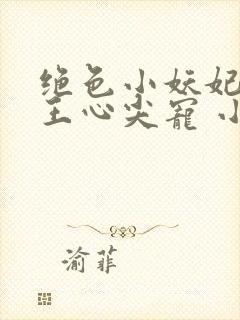 绝色小妖妃
王心尖宠 小
渝菲